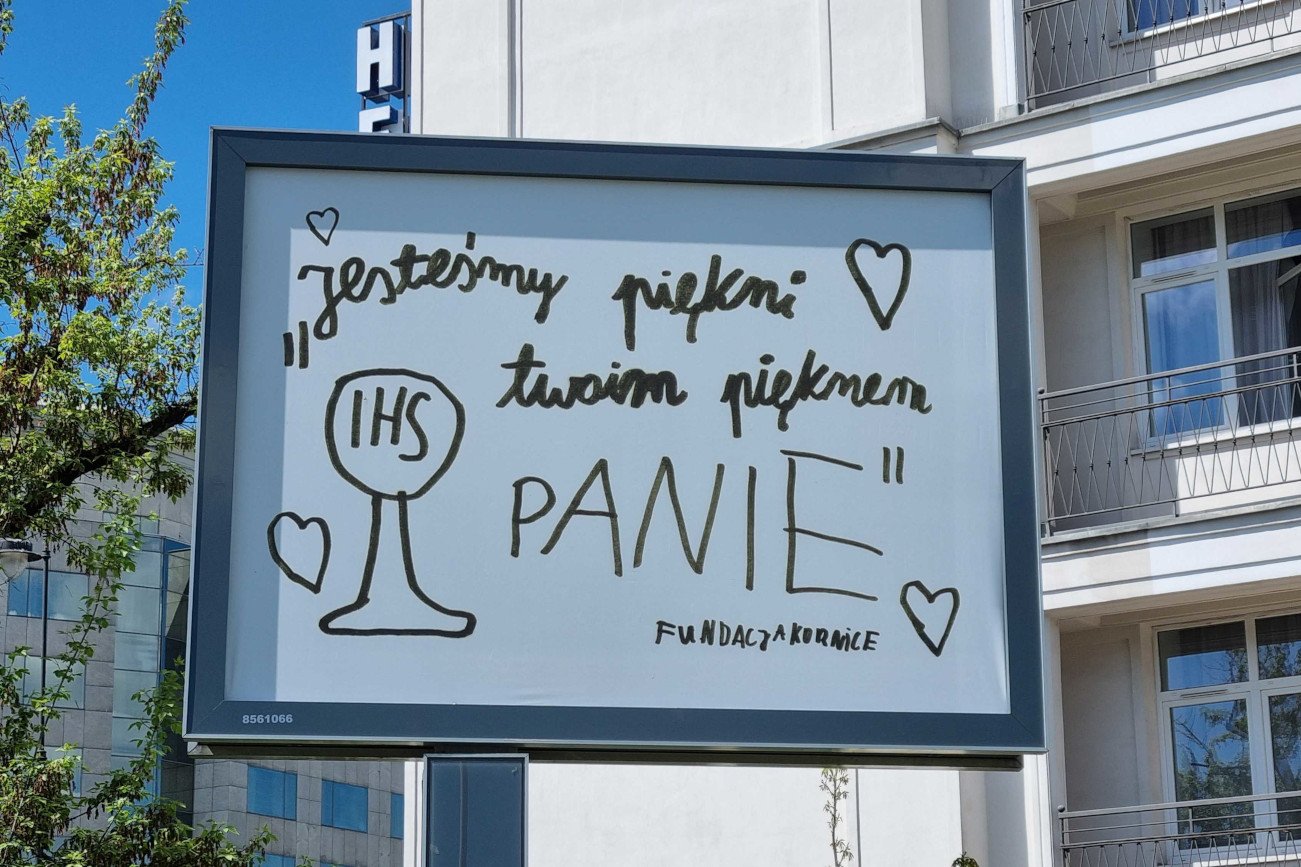 HE
"Jesteśmy piękni
twoim pięknem
PANIE"
IHS
FUNDACJAKORNICE
8561066